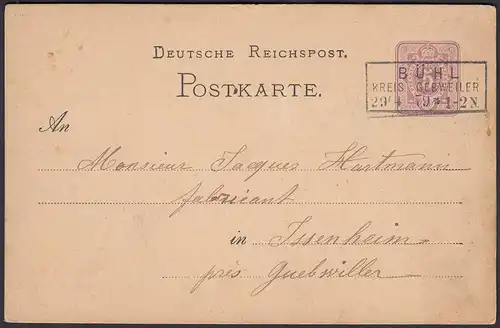 DEUTSCHE REICHSPOST.
POSTKARTE.
BÜHL
KREIS GEBWEILER
29/4 79 1-2N
An
Monsieur Jacques Hartmann
fabricant
in Issenheim
près Guebwiller